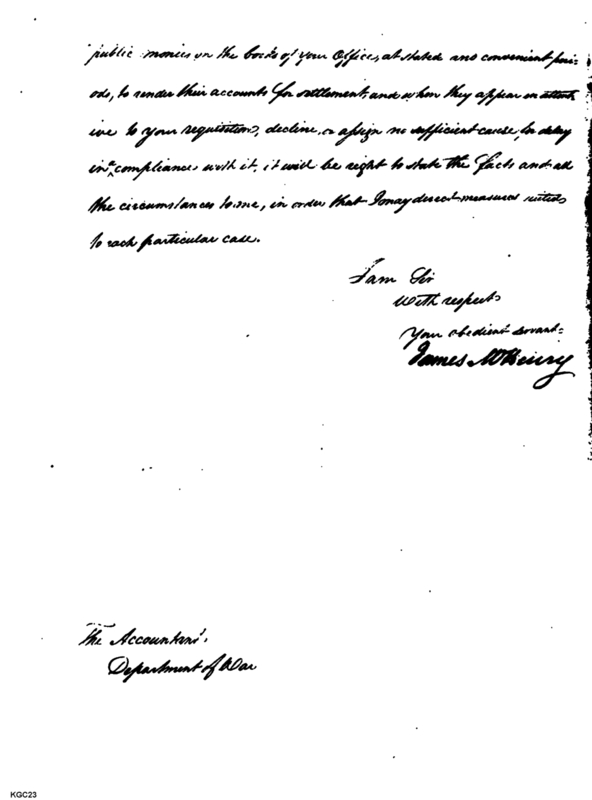 public monies on the books of your Office, at stated and convenient peri-
ods, to render their accounts for settlement and when they appear inattent
ive to your requisitions, decline, or assign no sufficient cause, for delay
in compliance with it, it will be right to state the facts and all
the circumstances to me, in order that I may direct measures suited
to each particular case.
I am Sir
With respect
Your obedient servant
James McHenry
The Accountant
Department of War
KGC23